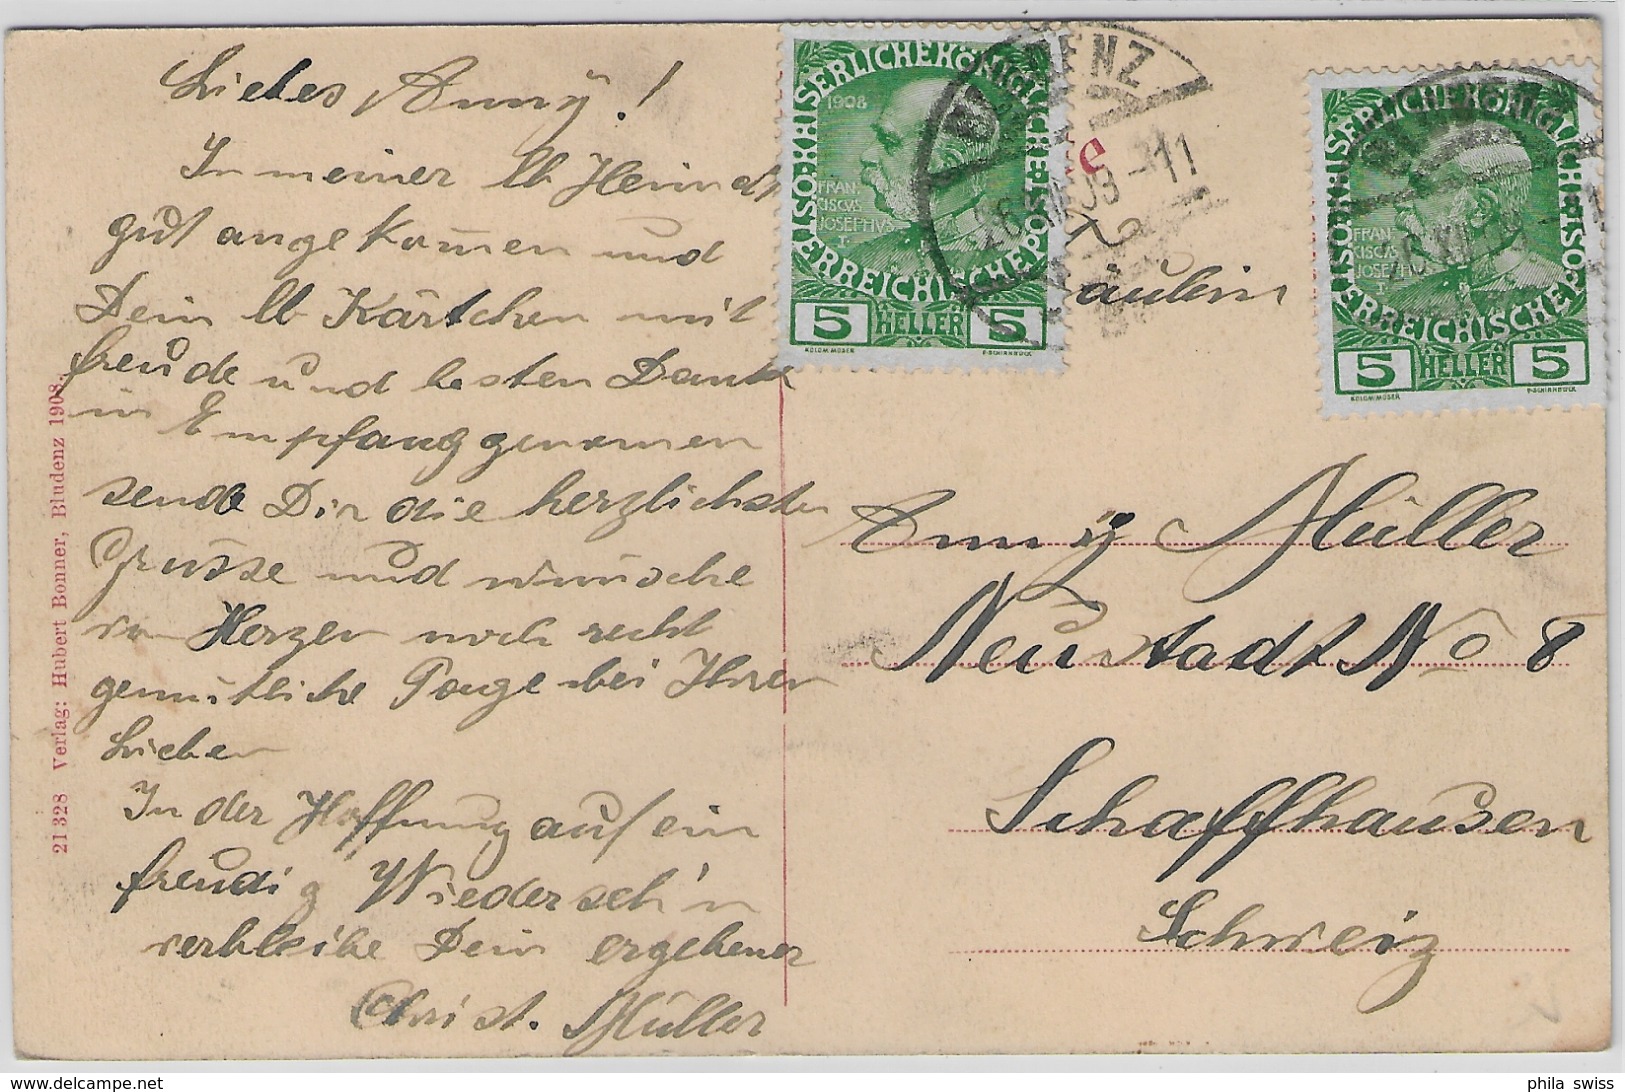 Liebes Anny!
In meiner lb Heimat
gut angekom̅en und
Dein lb Kärtchen mit
freude und besten Dank
in Empfang genomen
sende Dir die herzlichsten
Grüsse und wünsche
von Herzen noch recht
gemütliche Tage bei Ihren
Lieben
In der Hoffnung auf ein
freudig Wiederseh'n
verbleibe Dein ergebener
Christ. Müller
21328 Verlag: Hubert Bonner, Bludenz 1908
KAISERLICHE KÖNIGLICHE ÖSTERREICHISCHE POST
1908
FRAN
CISCVS
JOSEPHVS
I.
5 HELLER 5
KOLOM.MOSER
F.SCHIRNBÖCK
ENZ
26 XII 09 -11
KAISERLICHE KÖNIGLICHE ÖSTERREICHISCHE POST
FRAN
CISCVS
JOSEPHVS
I.
5 HELLER 5
KOLOM.MOSER
F.SCHIRNBÖCK
äulein
Anny Müller
Neustadt No 8
Schaffhausen
Schweiz
phila swiss